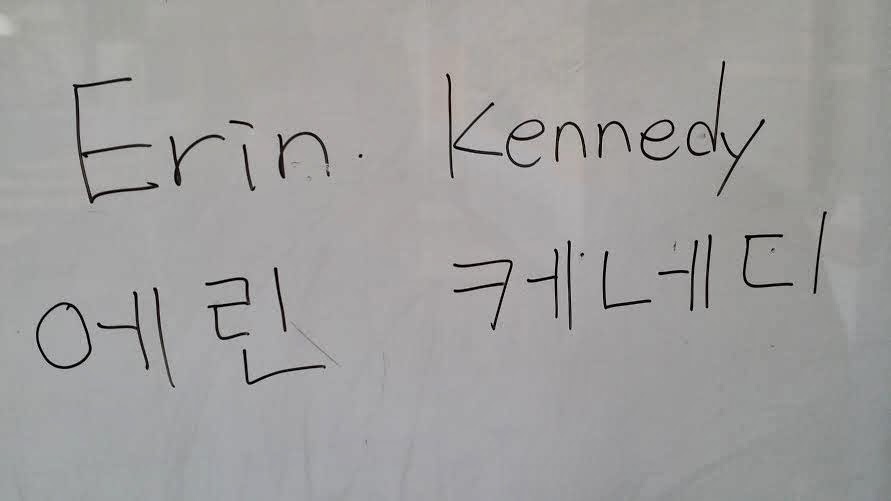 Erin. Kennedy
에린 케네디